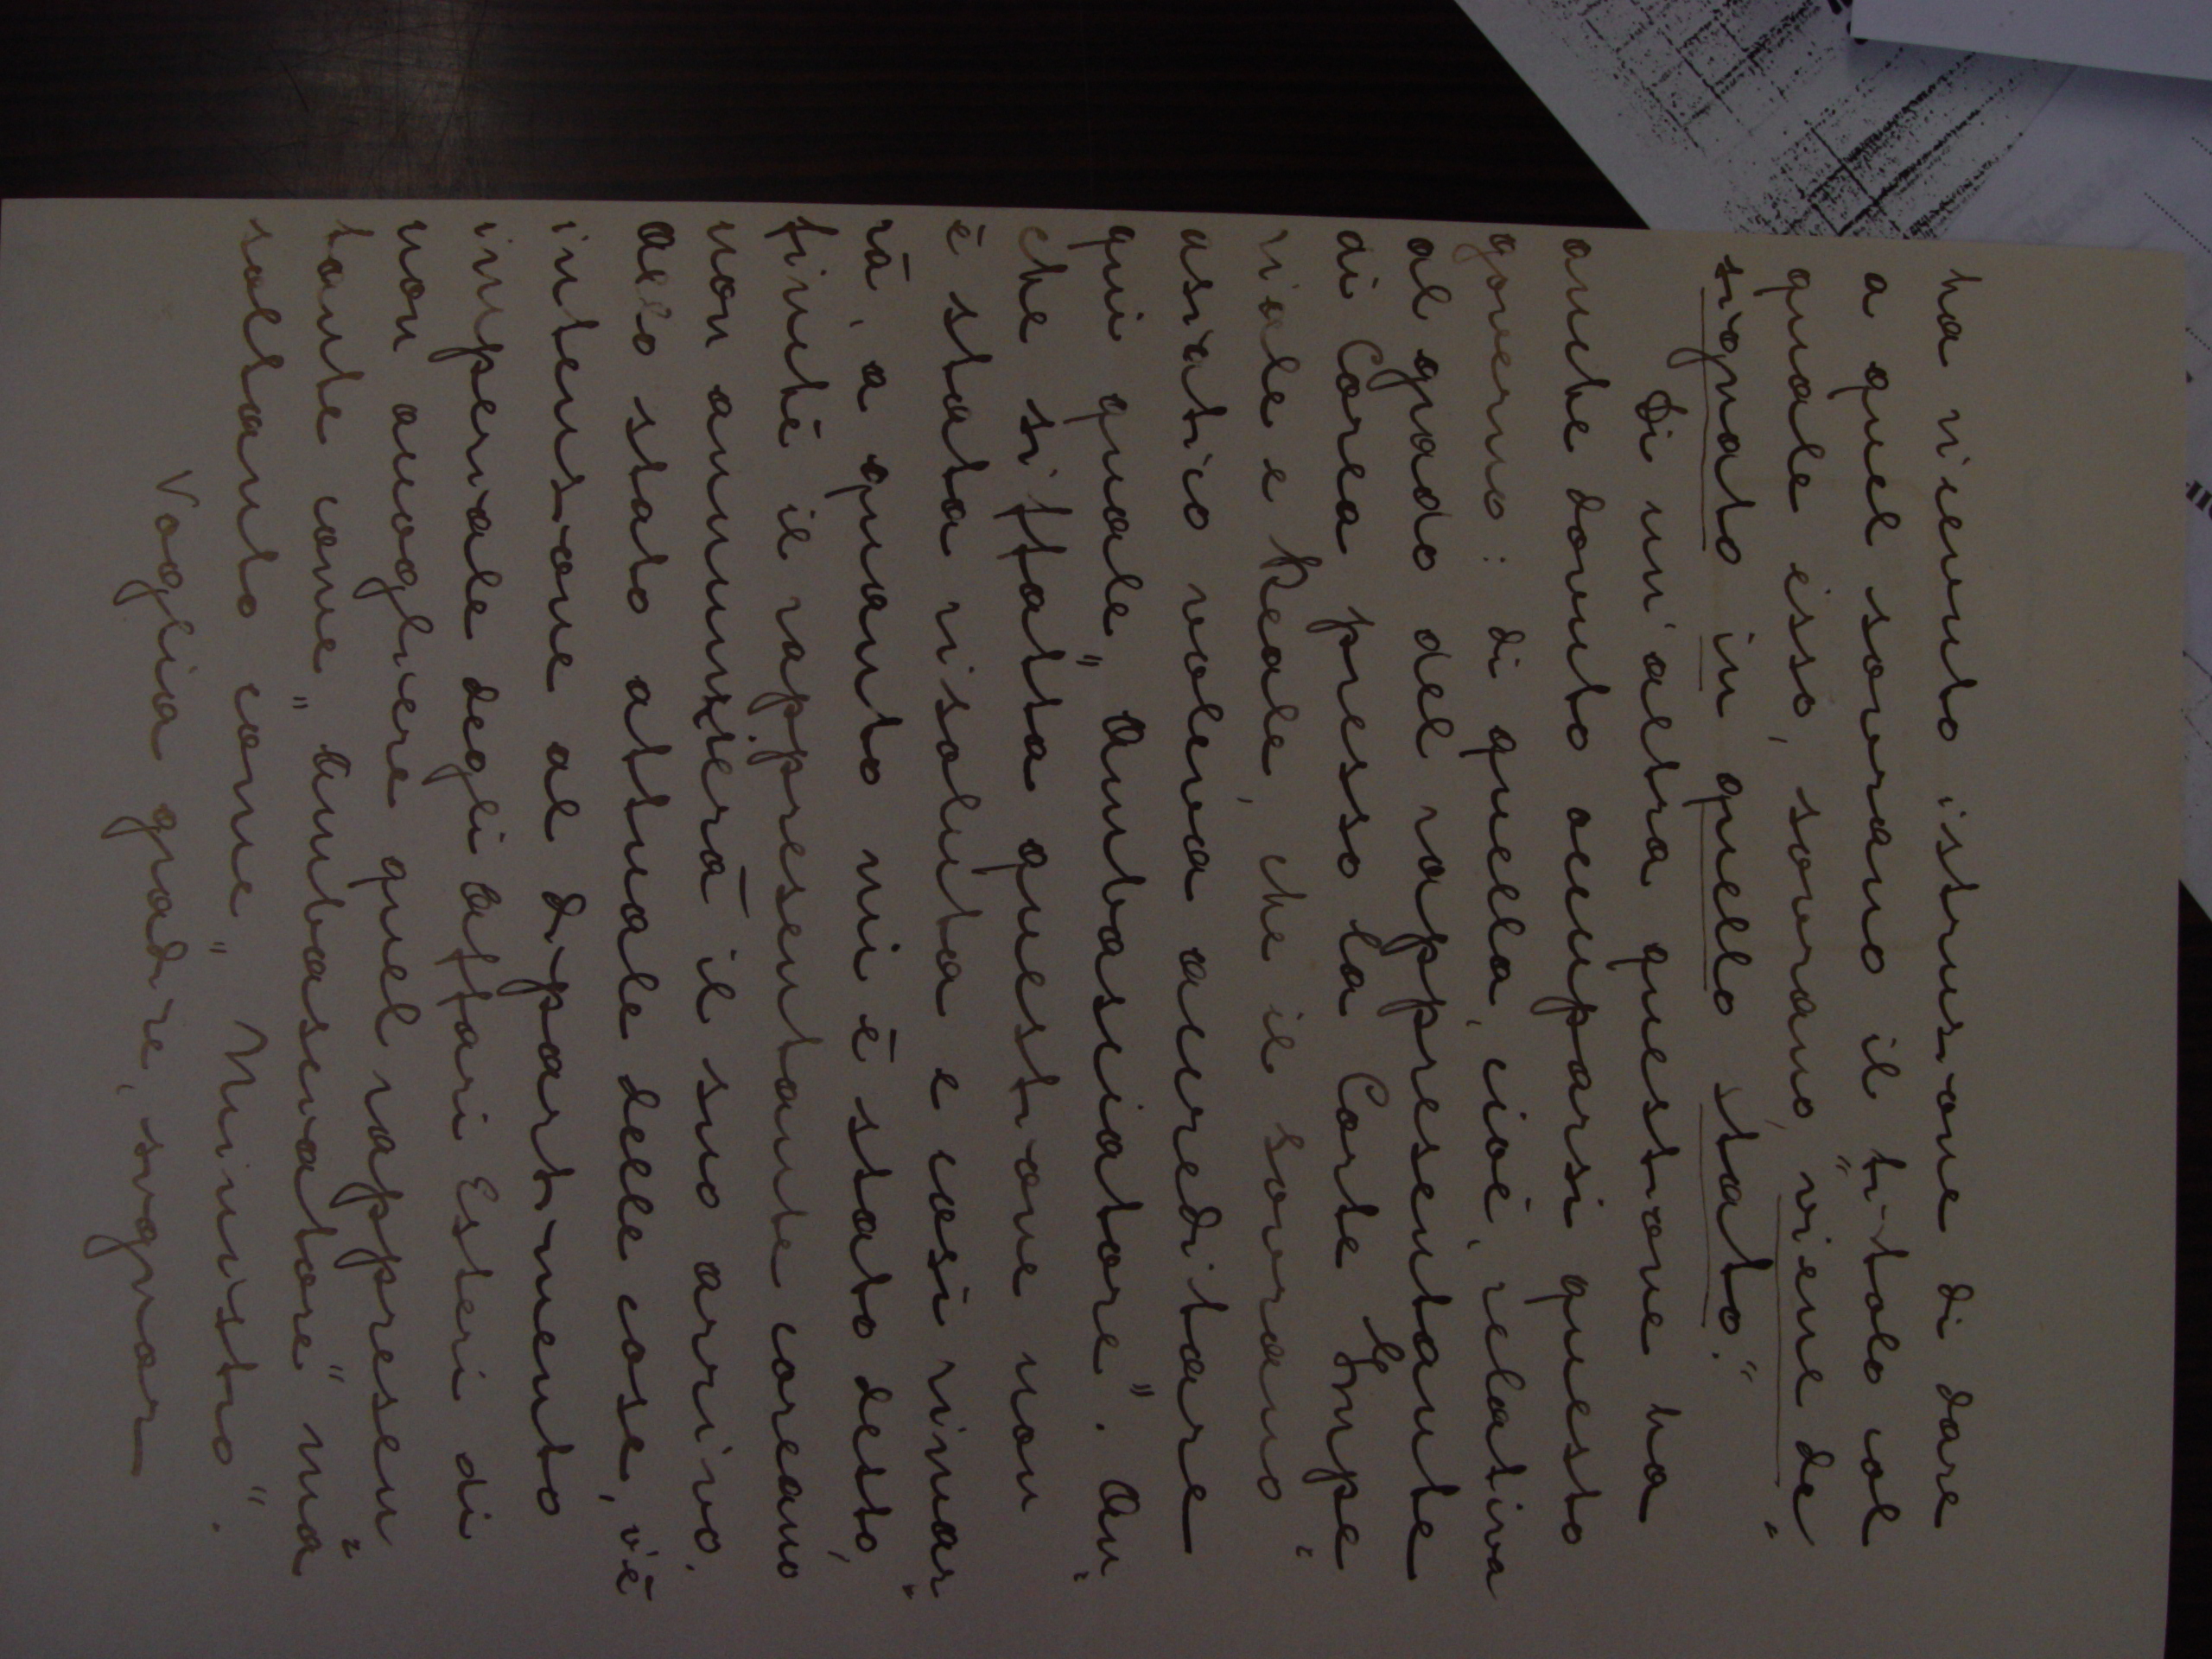 ha ricevuto istruzione di dare
a quel sovrano il "titolo col
quale esso, sovrano, viene de"
signato in quello stato."
Di un'altra questione ha
anche dovuto occuparsi questo
governo: di quella, cioè, relativa
al grado del rappresentante
di Corea presso la Corte Impe"
riale e Reale, che il sovrano
asiatico voleva accreditare
qui quale "Ambasciatore". An"
che siffatta questione non
è stata risoluta e così rimar"
rà, a quanto mi è stato detto,
finché il rappresentante coreano
non annunzierà il suo arrivo.
Allo stato attuale delle cose, v'è
intenzione al Dipartimento
imperiale degli Affari Esteri di
non accogliere quel rappresen"
tante come "Ambasciatore" ma
soltanto come "Ministro".
Voglia gradire, signor